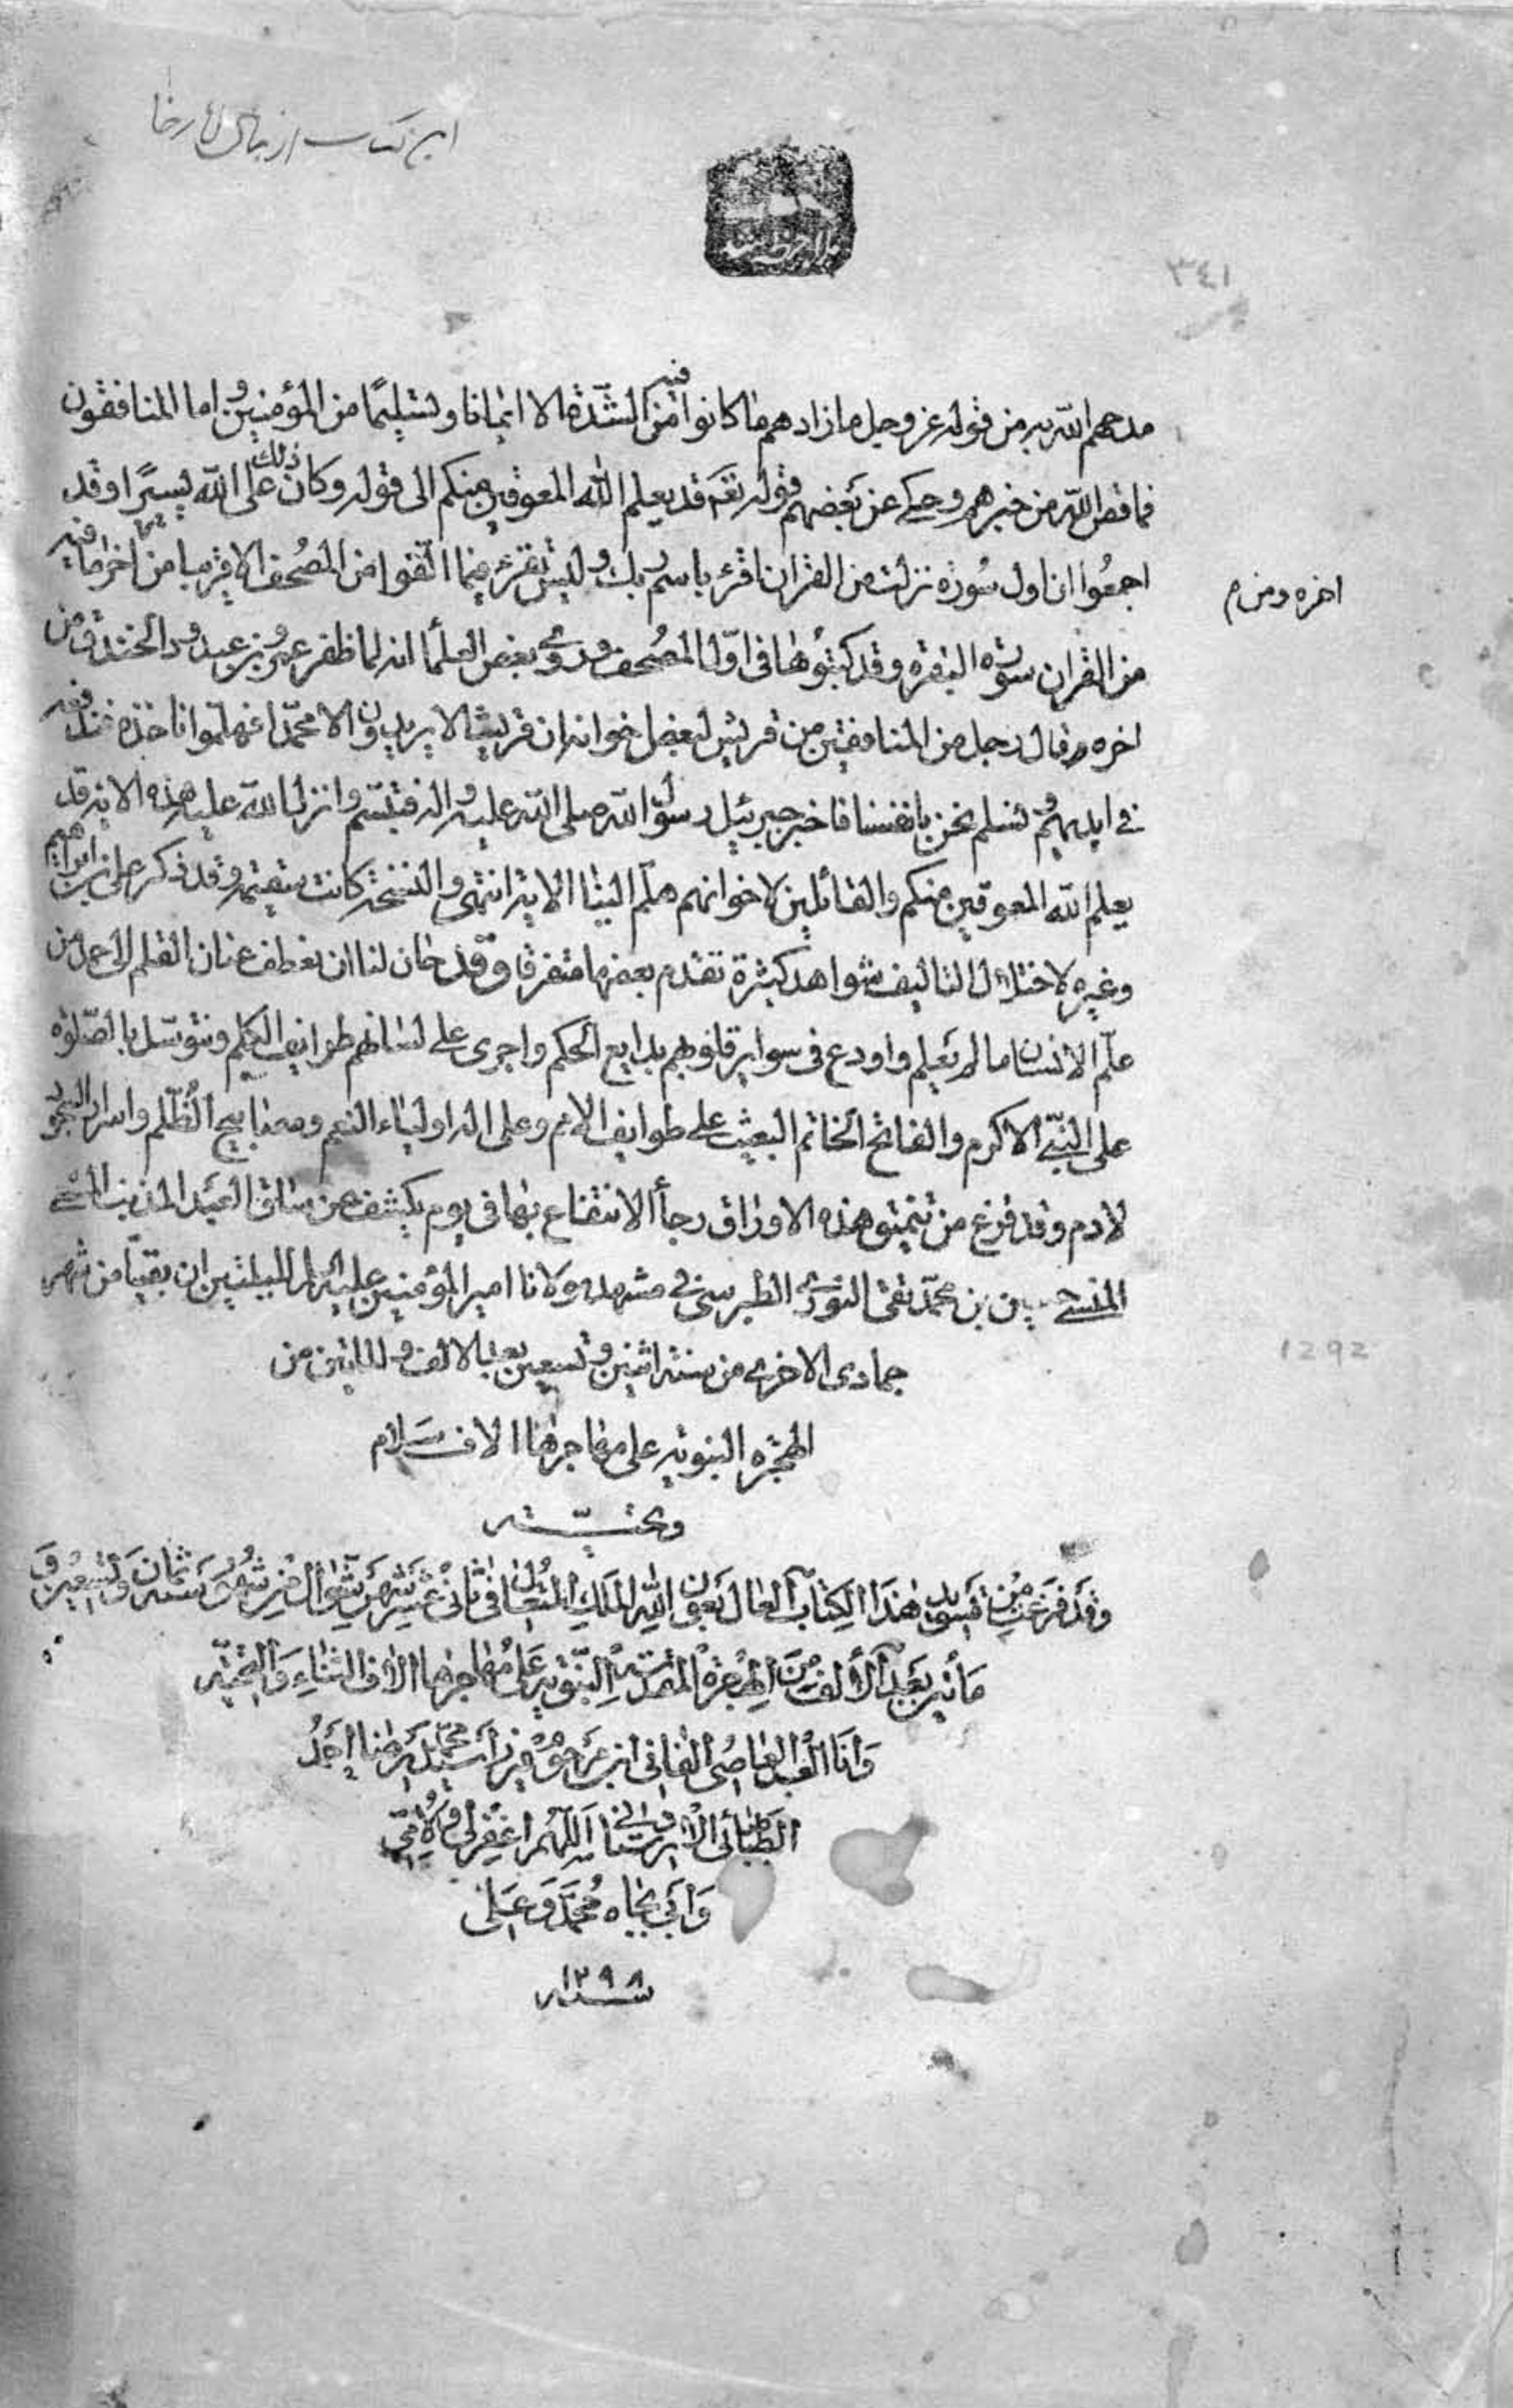 این کتاب از
ملاحظه شد
٣٤١
مدحهم الله به من قوله عز وجل ما زادهم ما كانوا فيه من الشدة الا ايمانا وتسليمًا من المؤمنين واما المنافقون
فما قص الله من خبرهم وحكى عن بعضهم قوله تعه قد يعلم الله المعوقين منكم الى قوله وكان ذلك على الله يسيرًا وقد
اجمعوا ان اول سورة نزلت من القران اقرء باسم ربك وليس تقرء فيما الفوا من المصحف الا قريبا من اخره
اخره ومن م
من القران سورة البقره وقد كتبوها فى اوّل المصحف وروى بعض العلمأ انه لما ظفر عمرو بن عبد ود الخندق من
اخره وقال رجل من المنافقين من قريش لبعض اخوانه ان قريشا لا يريدون الا محمّدا فهلموا ناخذه فندفعه
فى ايديهم ونسلم نحن بانفسنا فاخبر جبرئيل رسول الله صلى الله عليه واله فتبسّم وانزل الله عليه هذه الايه قد
يعلم الله المعوقين منكم والقائلين لاخوانهم هلّم الينا الايه انتهى والنسخة كانت سقيمه وقد ذكر على بن ابراهيم
وغيره لاختلال التاليف شواهد كثيرة تقدم بعضها متفرقا وقد حان لنا ان نعطف عنان القلم الى حمد من
علّم الانسان ما لم يعلم واودع فى سواير قلوبهم بدايع الحكم واجرى على لسانهم طوايف الكلم ونتوسّل بالصّلوة
على النبّى الاكرم والفاتح الخاتم البعيث على طوايف الامم وعلى اله اولياء النعم ومصابيح الظّلم واسرار السجود
لادم وقد فرغ من تنميق هذه الاوراق رجأ الانتفاع بها فى يوم يكشف عن ساق العبد المذنب المسئ
المنسى حسين بن محمّد تقى النورى الطبرسى فى مشهد مولانا امير المؤمنين عليه السّلام لليلتين ان بقيتا من شهر
جمادى الاخرى من سنة اثنين وتسعين بعد الالف والمايتين من
1292
الهجره النبويه على مهاجرها الاف سلام
وتحيّه
وقد فرغت من تسويد هذا الكتاب العال بعون الله الملك المتعال فى ثانى عشر شهر شوال من شهور سنة ثمان وتسعين و
مأتين بعد الألف من الهجرة المقدسة النّبويه على مهاجرها الاف الثناء والتّحيّه
وانا العبد العاصى الفانى ابن مرحوم ميرزا سيّد محمّد رضا احمد
الطباطبائى الاردستانى اللّهم اغفر لى ولامّى
وأبى بجاه محمّد وعلى
سنه ١٢٩٨